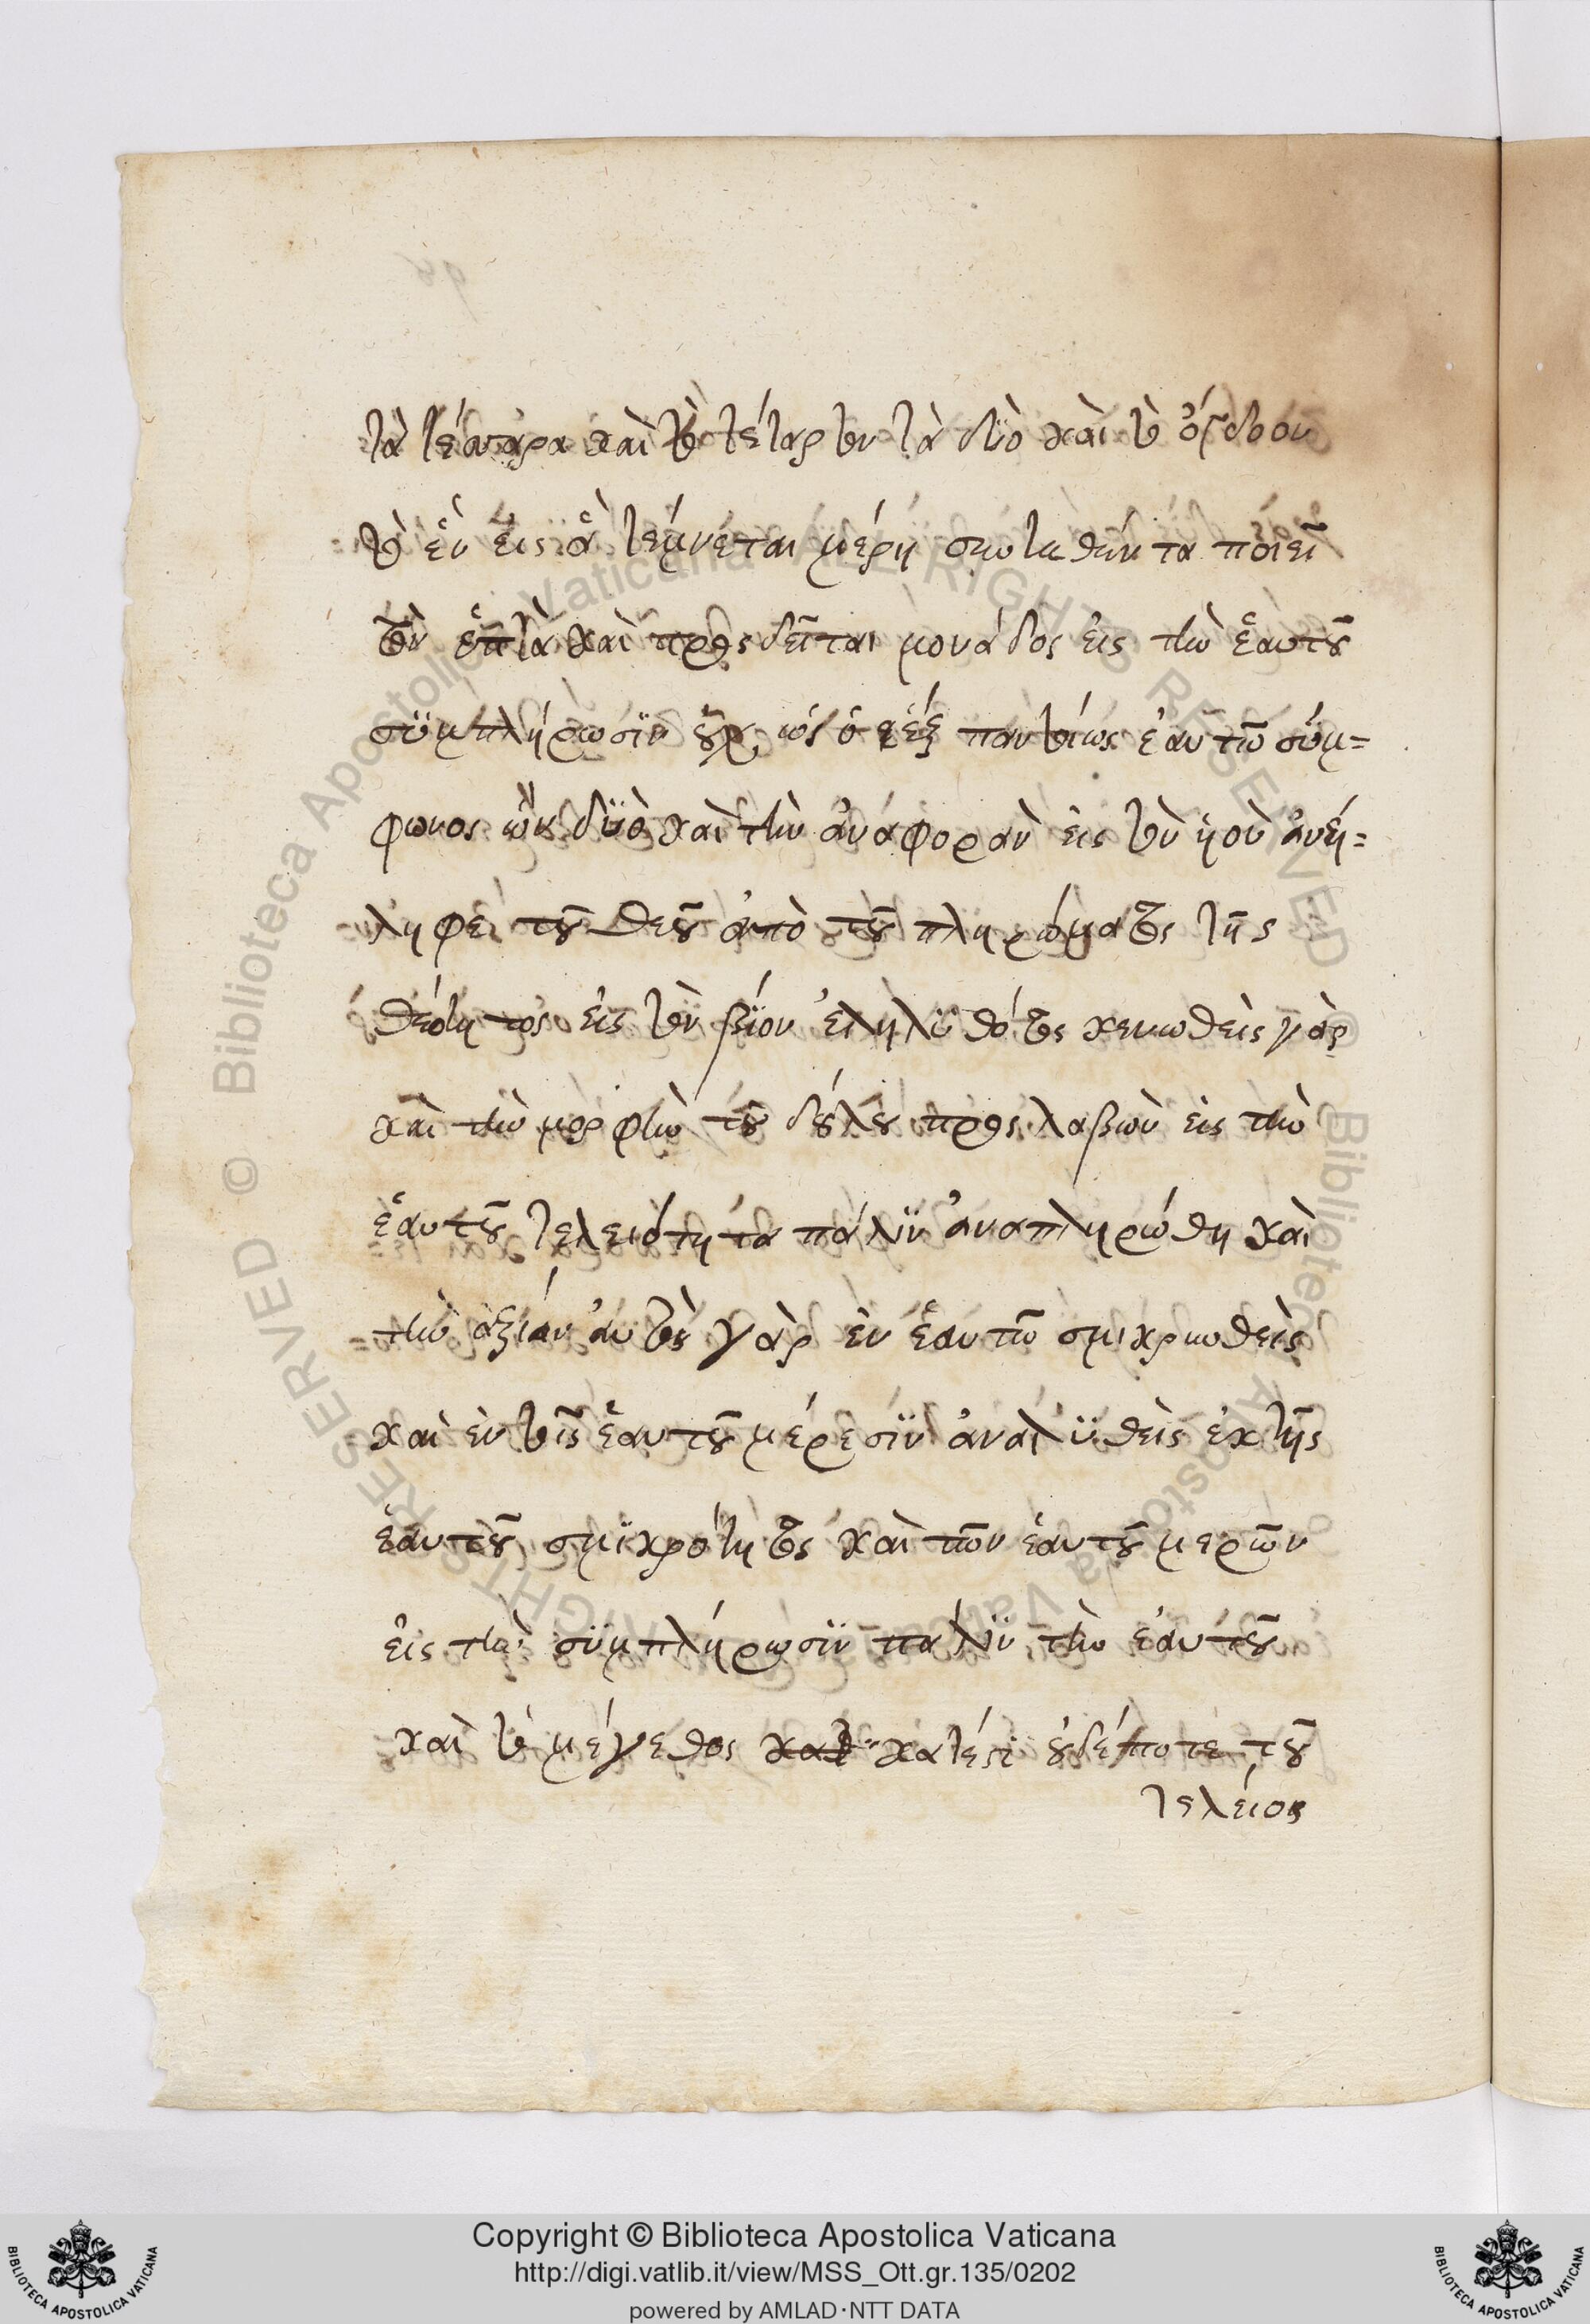 τὰ τέσσαρα καὶ τὸ τέταρτον τὰ δύο καὶ τὸ ὄγδοον
τὸ ἓν εἰς ἃ τέμνεται μέρη συντεθέντα ποιεῖ
τὸν ἑπτὰ καὶ προσδεῖται μονάδος εἰς τὴν ἑαυτοῦ
συμπλήρωσιν οὐχ ὡς ὁ ἓξ παντίως ἑαυτῷ σύμ=
φωνος ὢν διὸ καὶ τὴν ἀναφορὰν εἰς τὸν ἰοὺ ἀνεί=
ληφει τοῦ θεοῦ ἀπὸ τοῦ πληρώματος τῆς
θεότητος εἰς τὸν βίον ἐληλυθότος κενωθεὶς γὰρ
καὶ τὴν μορφὴν τοῦ δούλου προσλαβὼν εἰς τὴν
ἑαυτοῦ τελειότητα πάλιν ἀναπληρώθη καὶ
τὴν ἀξίαν αὐτὸς γὰρ ἐν ἑαυτῷ σμικρωθεὶς
καὶ ἐν τοῖς ἑαυτοῦ μέρεσιν ἀναλυθεὶς ἐκ τῆς
ἑαυτοῦ σμικρότητος καὶ τῶν ἑαυτοῦ μερῶν
εἰς τὴν συμπλήρωσιν πάλιν τὴν ἑαυτοῦ
καὶ τὸ μέγεθος κατέστι οὐδέποτε τοῦ
τελείος
Copyright © Biblioteca Apostolica Vaticana
http://digi.vatlib.it/view/MSS_Ott.gr.135/0202
powered by AMLAD·NTT DATA
BIBLIOTECA APOSTOLICA VATICANA
BIBLIOTECA APOSTOLICA VATICANA